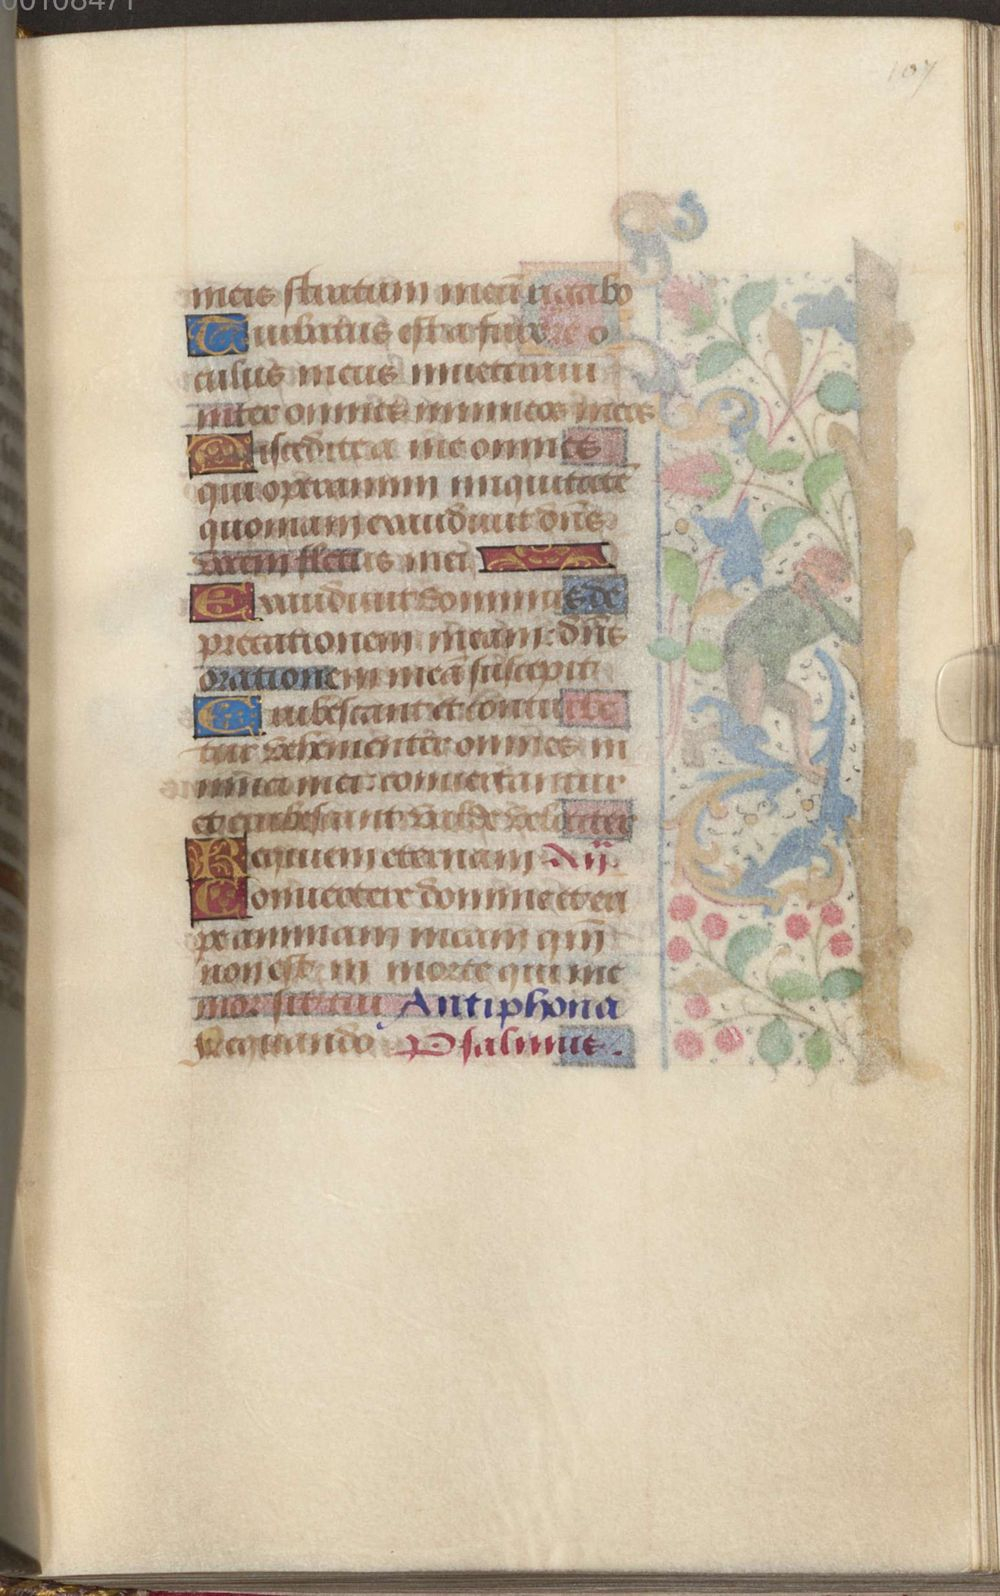 00108471
107
meis stratum meū rigabo
Turbatus est a furore o
culus meus inveteravi
inter omnes inimicos meos
Discedite a me omnes
qui operamini iniquitatē
quoniam exaudivit dn̄s
vocem fletus mei
Exaudivit dominus de
precationem meam: dn̄s
orationem meā suscepit
Erubescant et contur be
tur vehementer omnes in
imici mei: convertantur
et erubescant valde velociter
Requiem eternam A ij.
Convertere domine et eri
pe animam meam qm̄
non est in morte qui me
mor sit tui Antiphona
Nequando Psalmus.